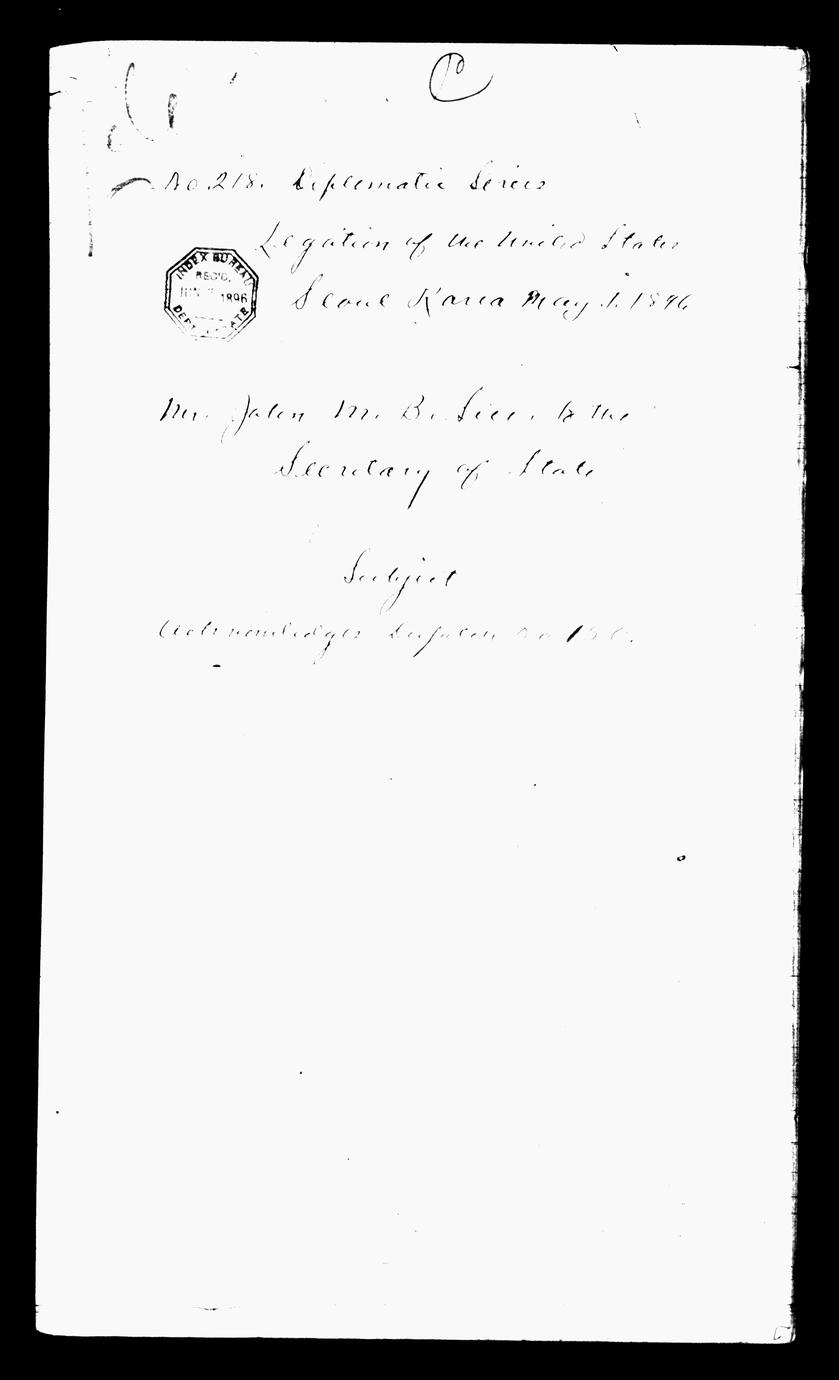 No. 218. Diplomatic Series
Legation of the United States
INDEX BUREAU
REC'D.
1896
DEPT STATE
Seoul Korea May 1. 1896
Mr. John M. B. Sill, to the
Secretary of State
Subject
Acknowledges Despatch No